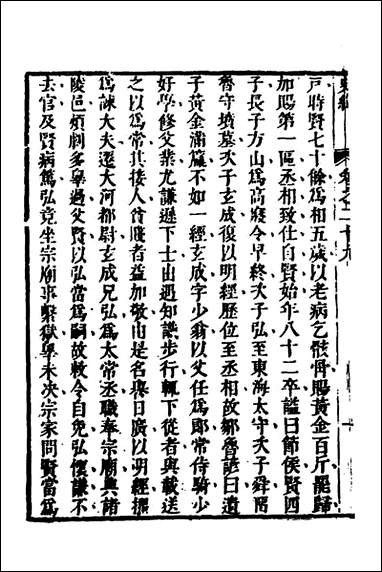 卷之二十九
戸時賢七十餘爲相五歲以老病乞骸骨賜黃金百斤罷歸
加賜第一區丞相致仕自賢始年八十二卒謚曰節侯賢四
子長子方山爲高寢令早終次子弘至東海太守次子舜留
魯守墳墓次子玄成復以明經歷位至丞相故鄒魯諺曰遺
子黃金滿籯不如一經玄成字少翁以父任爲郎常侍騎少
好學修父業尤謙遜下士出遇知識步行輒下從者與載送
之以爲常其接人貧賤者益加敬由是名與日廣以明經擢
爲諫大夫遷大河都尉玄成兄弘爲太常丞職奉宗廟典諸
陵邑煩劇多辠過父賢以弘當爲嗣故敕令自免弘懷謙不
去官及賢病篤弘竟坐宗廟事繫獄辠未决宗家問賢當爲